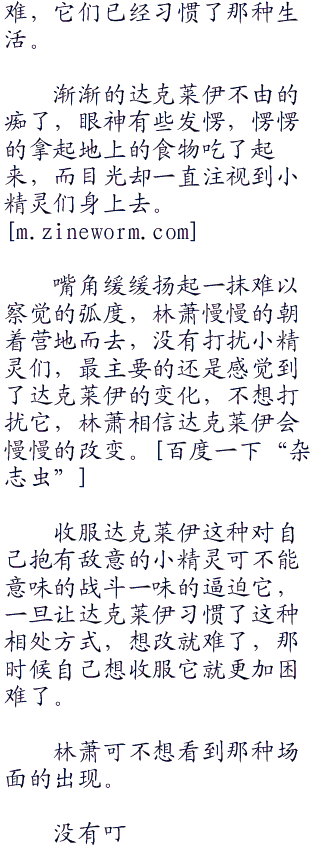 难，它们已经习惯了那种生
活。
渐渐的达克莱伊不由的
痴了，眼神有些发愣，愣愣
的拿起地上的食物吃了起
来，而目光却一直注视到小
精灵们身上去。
[m.zineworm.com]
嘴角缓缓扬起一抹难以
察觉的弧度，林萧慢慢的朝
着营地而去，没有打扰小精
灵们，最主要的还是感觉到
了达克莱伊的变化，不想打
扰它，林萧相信达克莱伊会
慢慢的改变。[百度一下“杂
志虫”]
收服达克莱伊这种对自
己抱有敌意的小精灵可不能
意味的战斗一味的逼迫它，
一旦让达克莱伊习惯了这种
相处方式，想改就难了，那
时候自己想收服它就更加困
难了。
林萧可不想看到那种场
面的出现。
没有叮